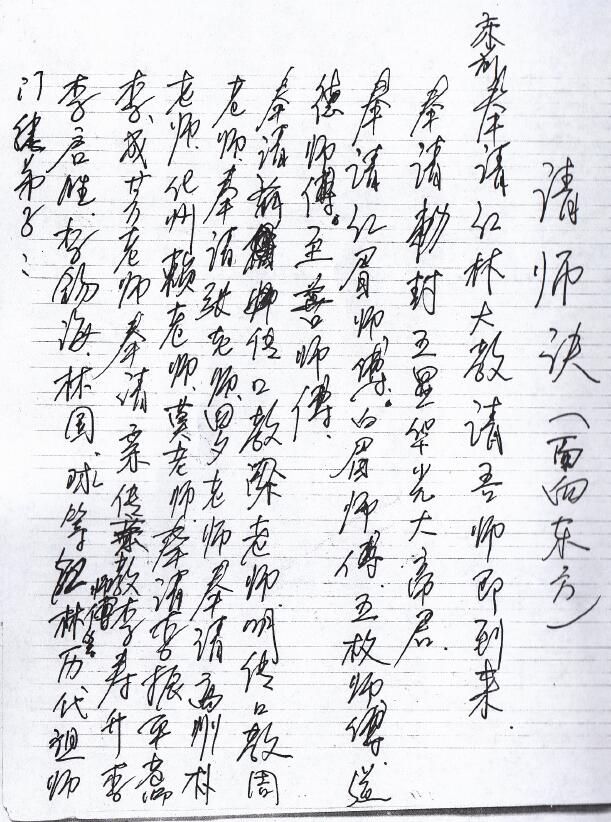 请师诀（面向东方）
奉请红林大教请吾师即到来.
奉请勅封五显华光大帝君.
奉请红眉师傅.白眉师傅.五枚师傅.道
德师傅.至善师傅.
奉请 师传口教 老师.明传口教周
老师.奉请 老师.罗老师.奉请高州林
老师.化州赖老师.莫老师.奉请李振
李成芳老师.奉请亲传 教李寿升李
李启胜.李锡海.林国球等红林历代祖师
门徒弟子：